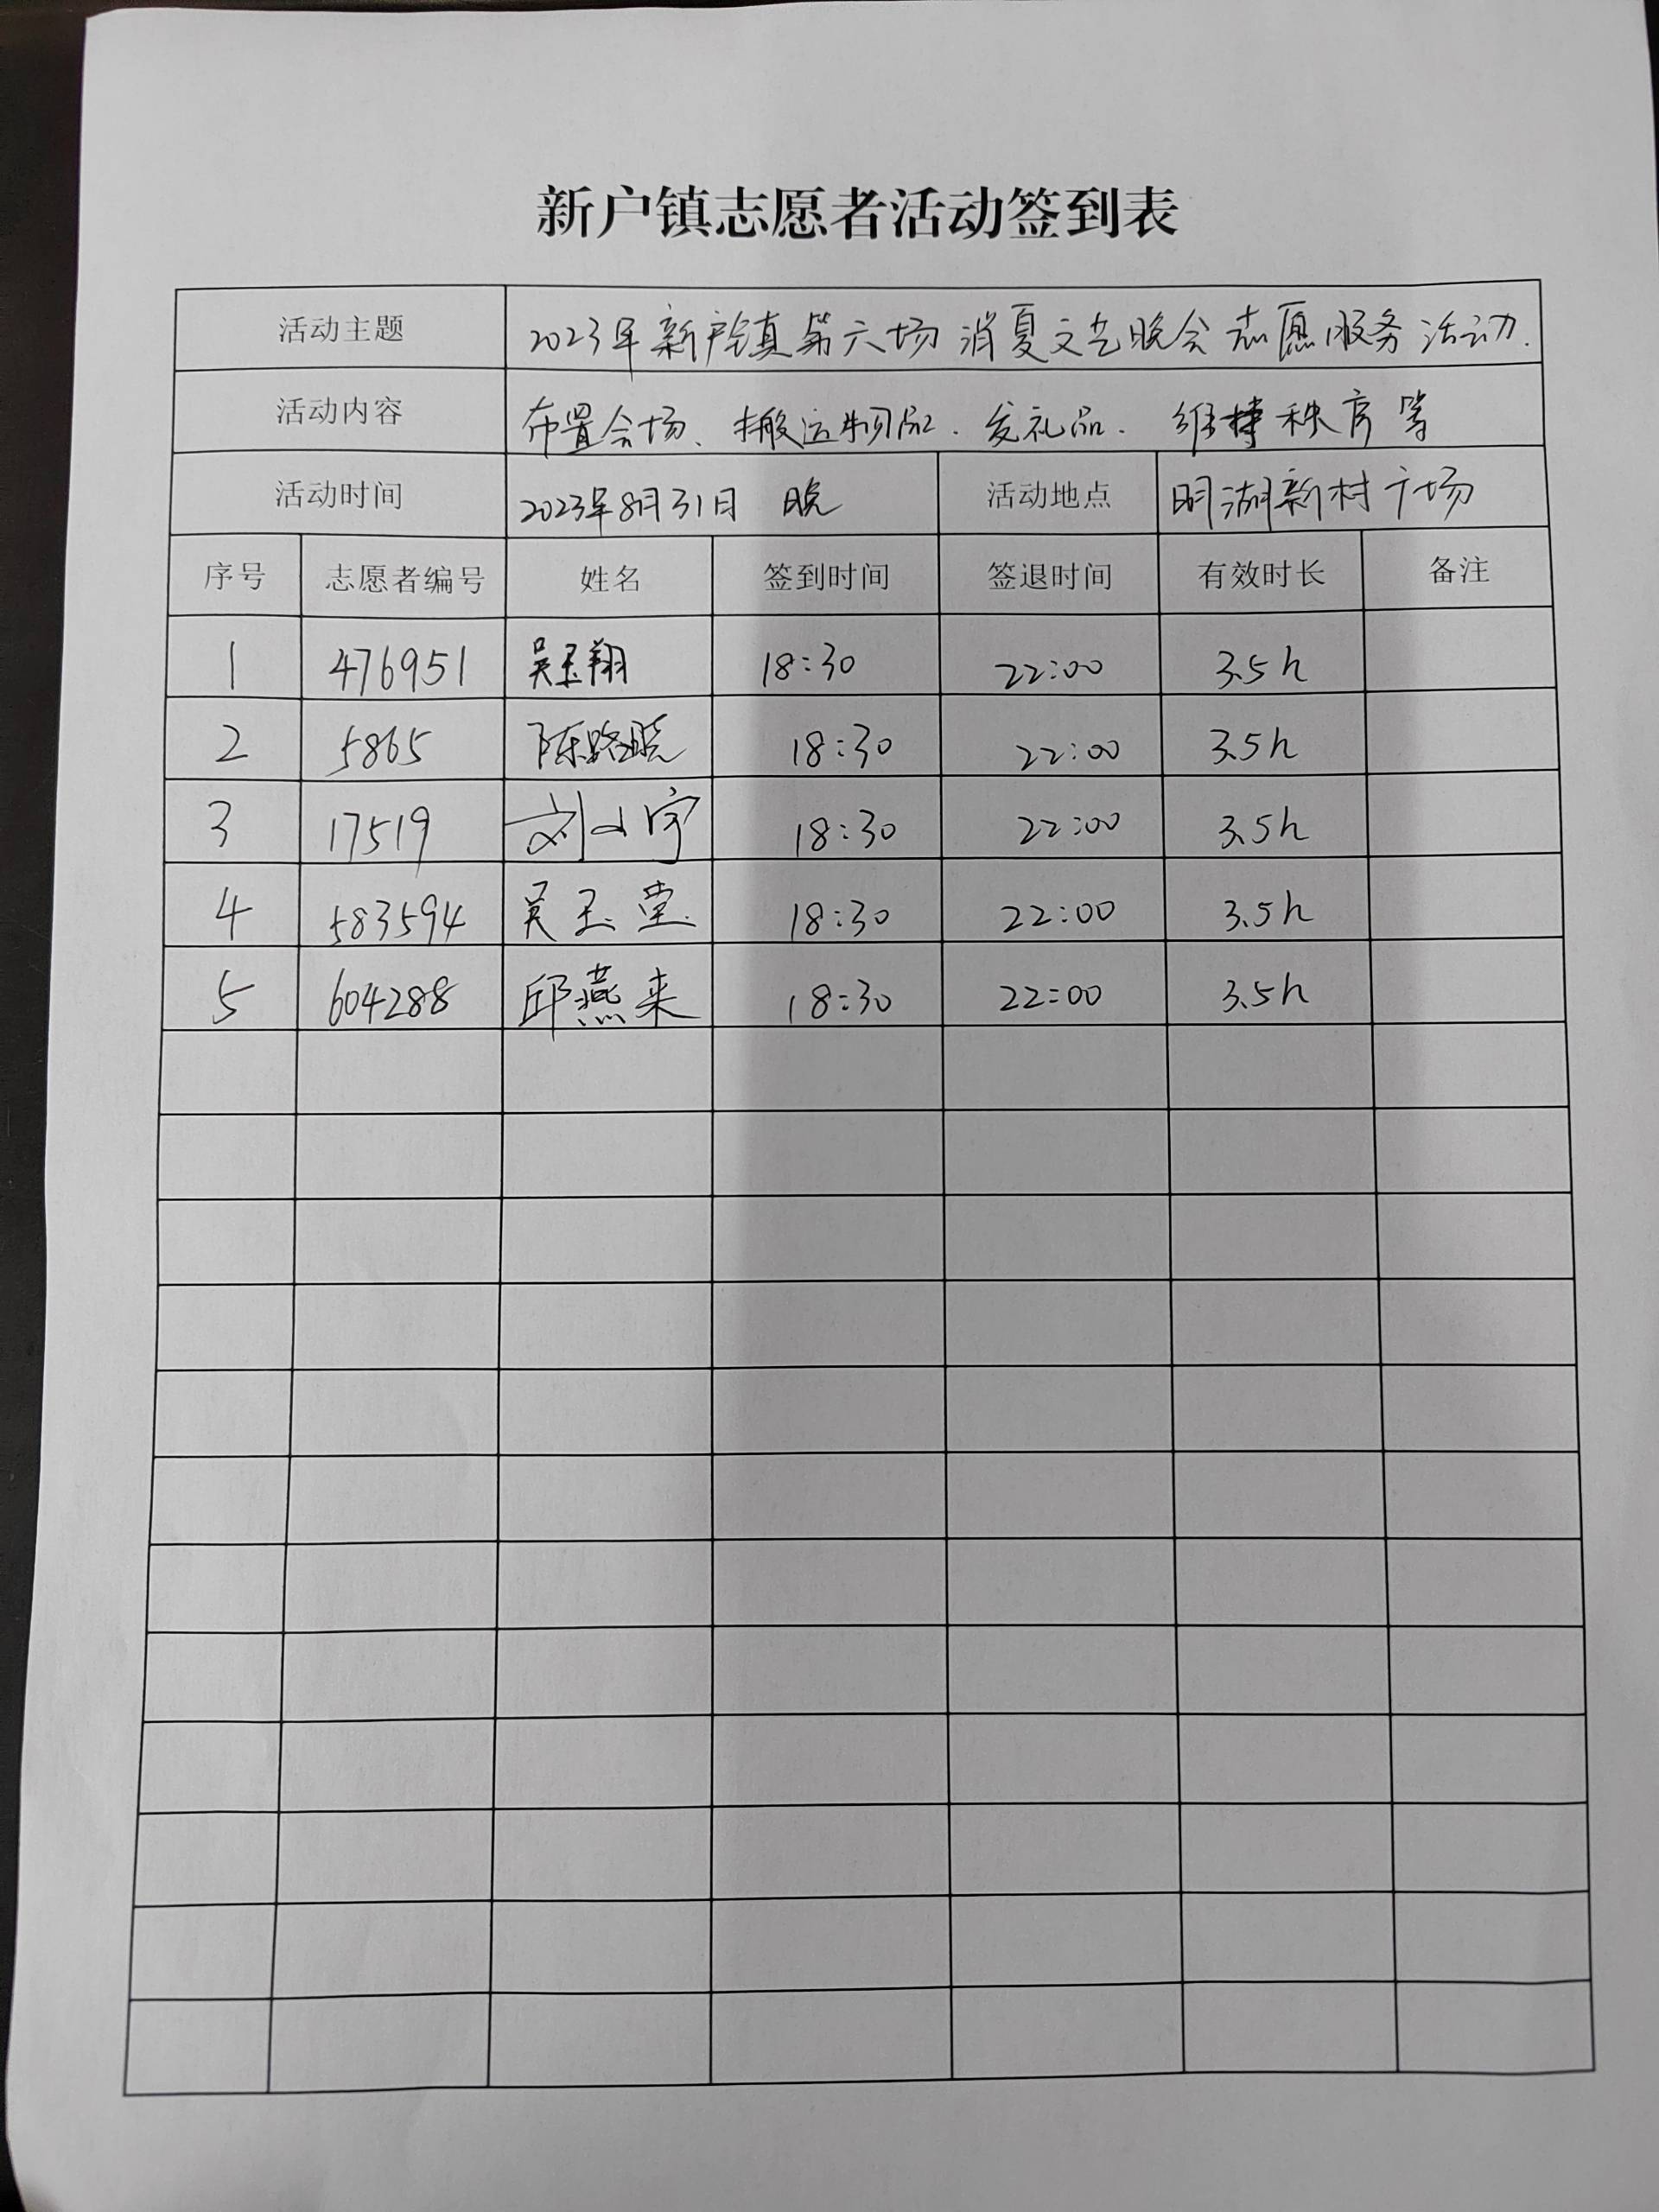 新户镇志愿者活动签到表
活动主题 2023年新户镇第六场消夏文艺晚会志愿服务活动.
活动内容 布置会场、搬运物品.发礼品.维持秩序等
活动时间 2023年8月31日 晚 活动地点 明湖新村广场
序号 志愿者编号 姓名 签到时间 签退时间 有效时长 备注
1 476951 吴玉翔 18:30 22:00 3.5h
2 5865 陈路晓 18:30 22:00 3.5h
3 17519 刘小宇 18:30 22:00 3.5h
4 583594 吴玉堂 18:30 22:00 3.5h
5 604288 邱燕来 18:30 22:00 3.5h